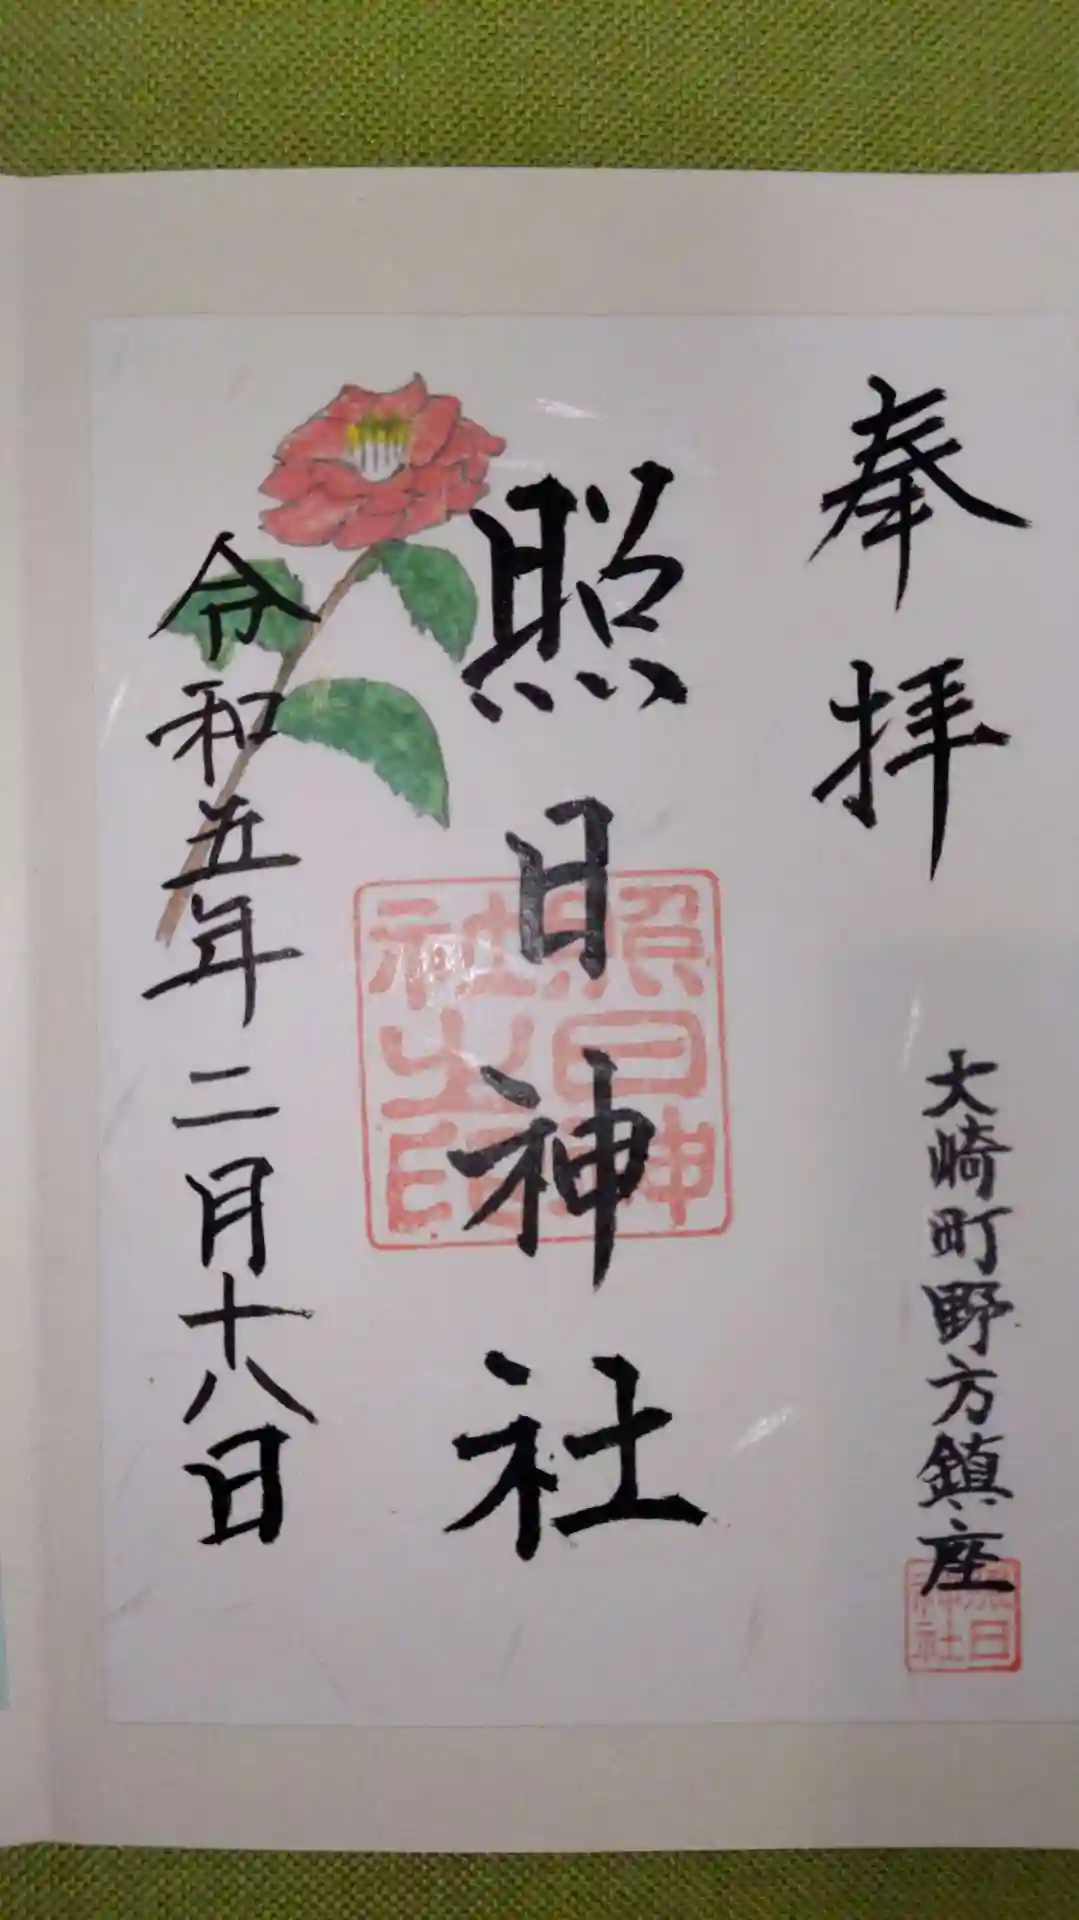 奉拝
大崎町野方鎮座
照日神社
照日神社之印
照日神社
令和五年二月十八日